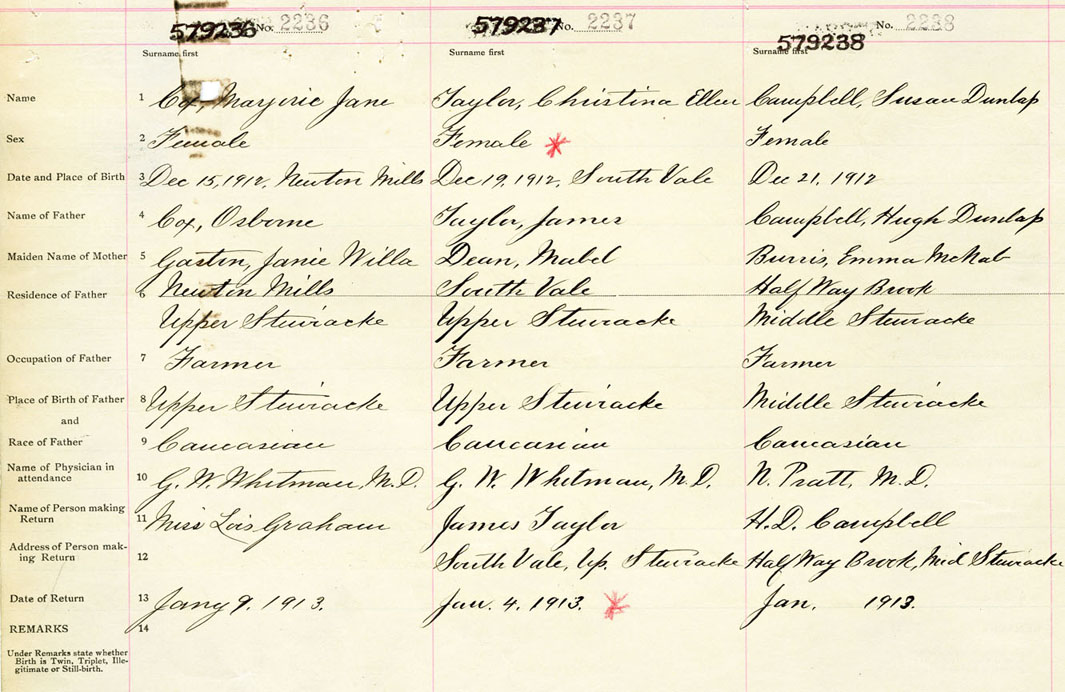 579236 No. 2236 579237 No. 2237 579238 No. 2238
Surname first Surname first Surname first
Name 1 Cox, Marjorie Jane Taylor, Christina Ellen Campbell, Susan Dunlap
Sex 2 Female Female Female
Date and Place of Birth 3 Dec 15, 1912, Newton Mills Dec 19, 1912, South Vale Dec 21, 1912
Name of Father 4 Cox, Osborne Taylor, James Campbell, Hugh Dunlap
Maiden Name of Mother 5 Gaston, Janie Willa Dean, Mabel Burris, Emma McNab
Residence of Father 6 Newton Mills South Vale Half Way Brook
Upper Stewiacke Upper Stewiacke Middle Stewiacke
Occupation of Father 7 Farmer Farmer Farmer
Place of Birth of Father 8 Upper Stewiacke Upper Stewiacke Middle Stewiacke
and
Race of Father 9 Caucasian Caucasian Caucasian
Name of Physician in
attendance 10 G. W. Whitman, M.D. G. W. Whitman, M.D. N. Pratt, M.D.
Name of Person making
Return 11 Miss Lois Graham James Taylor H.D. Campbell
Address of Person mak-
ing Return 12 South Vale, Up. Stewiacke Half Way Brook, Mid Stewiacke
Date of Return 13 Jany 9. 1913. Jan. 4. 1913. Jan. 1913.
REMARKS 14
Under Remarks state whether
Birth is Twin, Triplet, Ille-
gitimate or Still-birth.